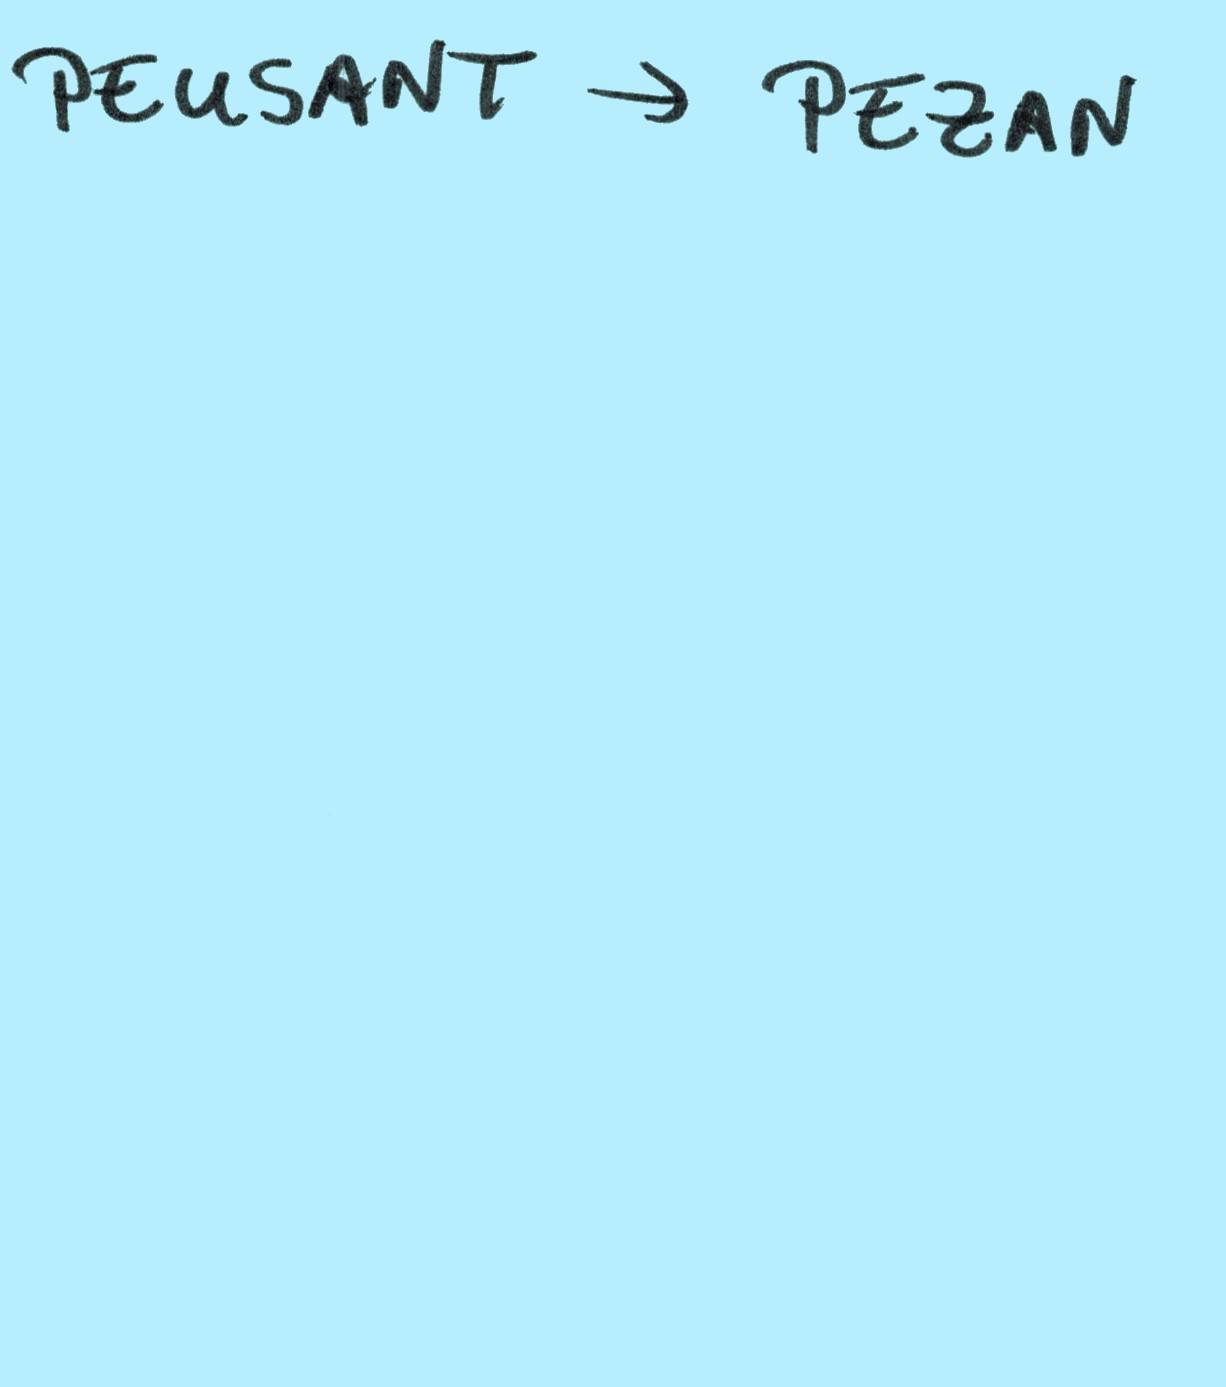 PEUSANT → PEZAN